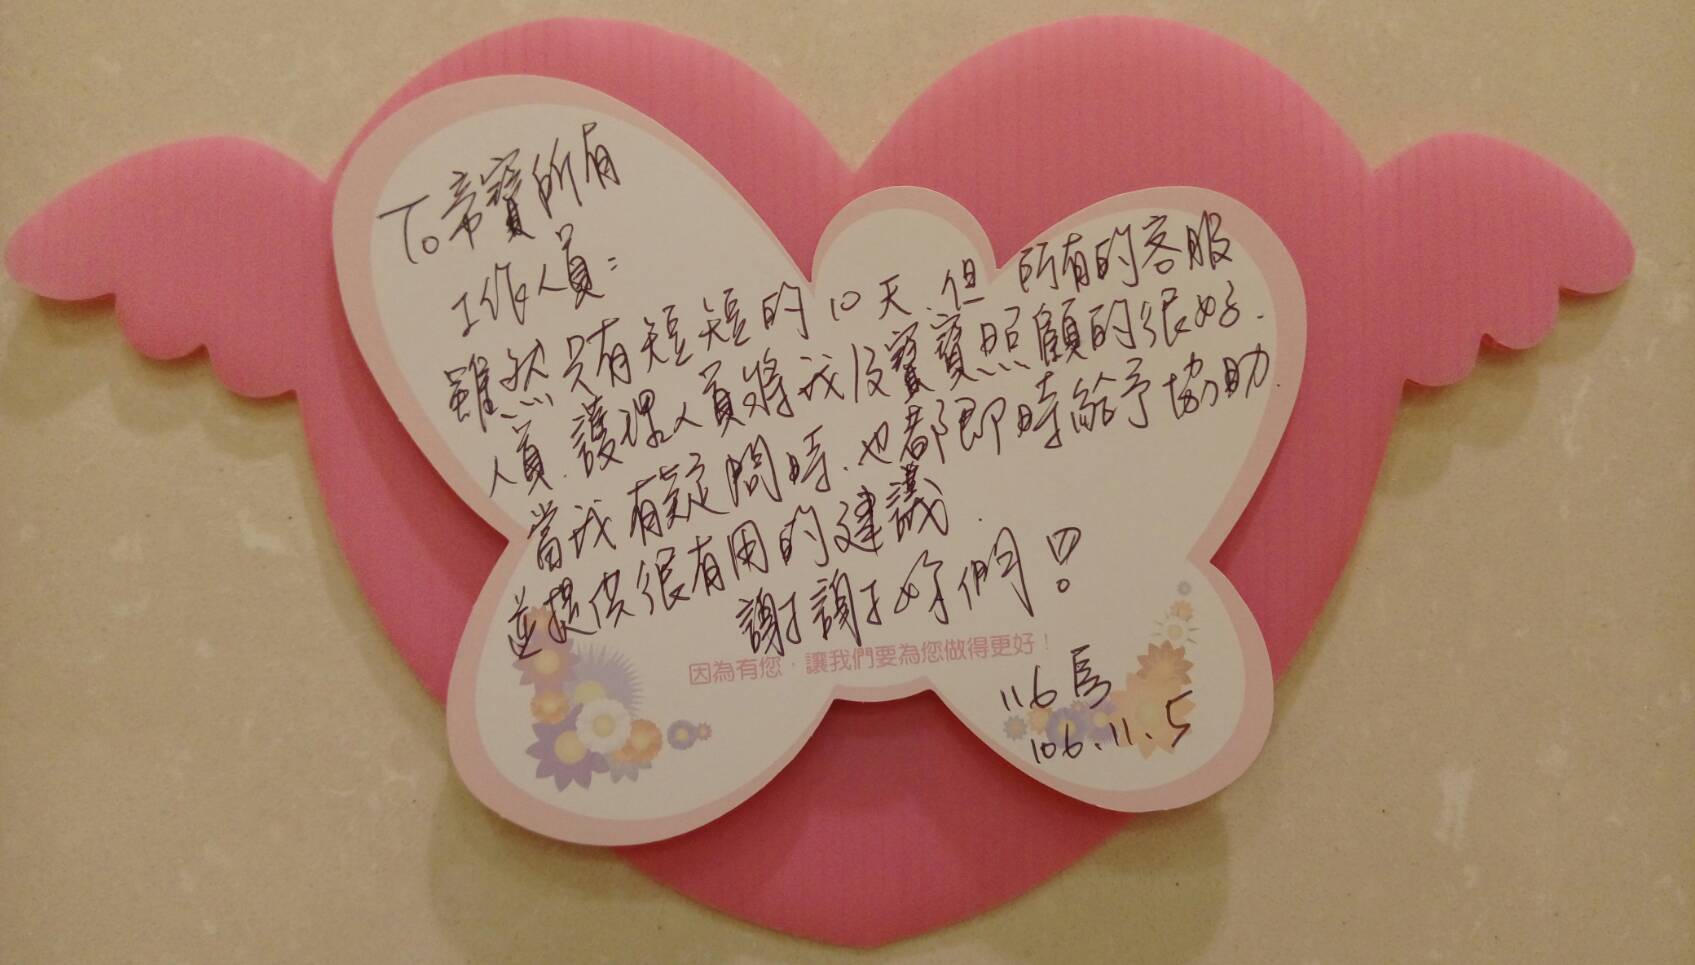 To帝寶所有
工作人員:
雖然只有短短的10天.但所有的客服
人員.護理人員將我及寶寶照顧的很好.
當我有疑問時.也都即時給予協助.
並提供很有用的建議.
謝謝妳們!
因為有您,讓我們要為您做得更好!
116房
106.11.5